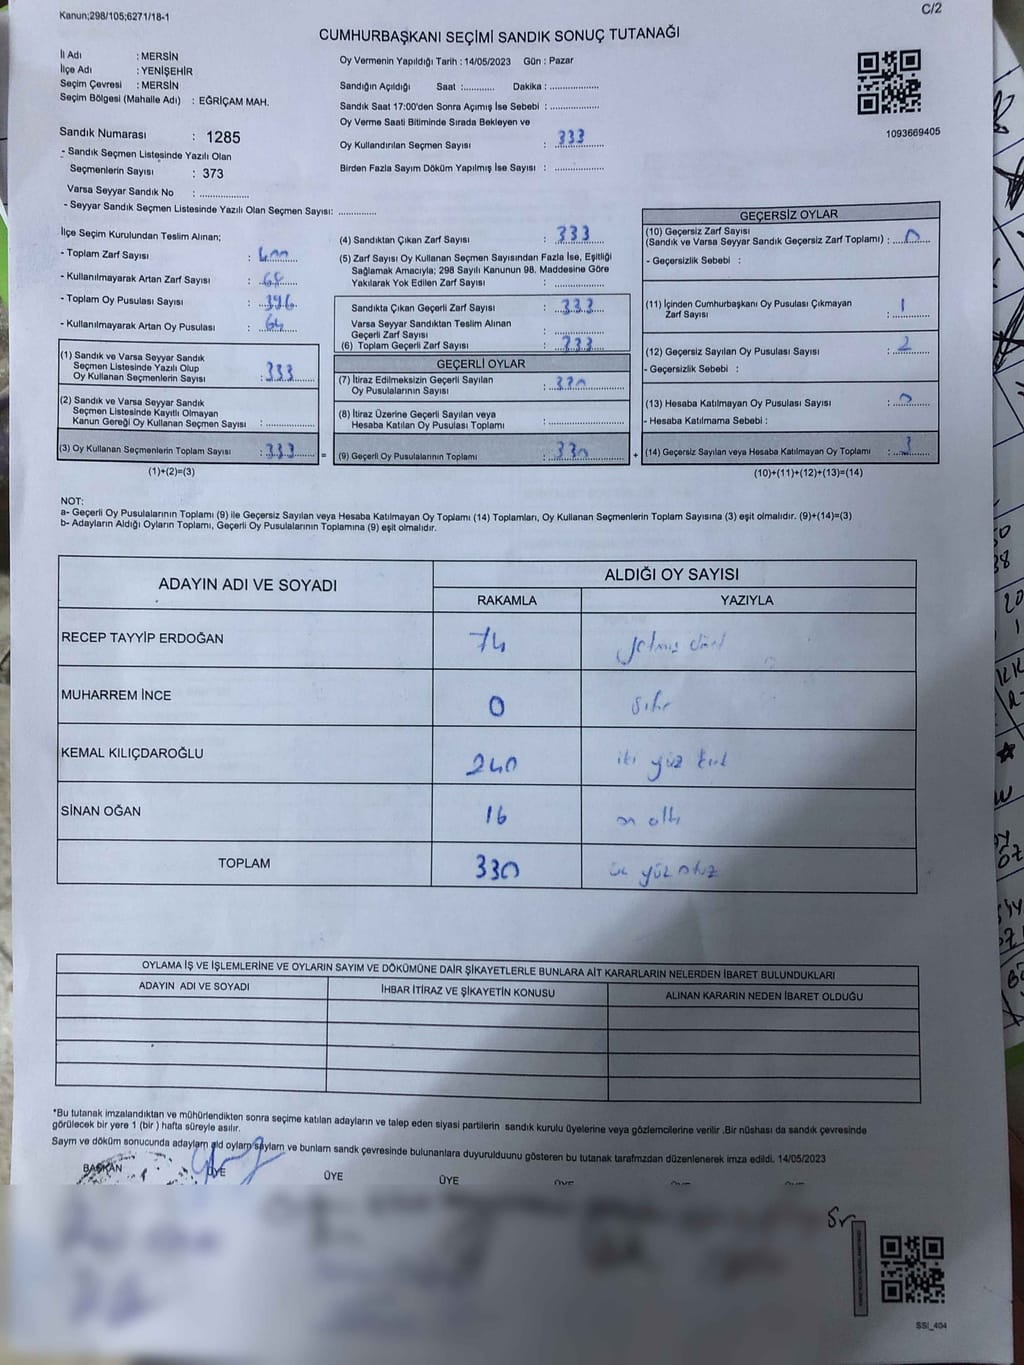 Kanun;298/105;6271/18-1
C/2
CUMHURBAŞKANI SEÇİMİ SANDIK SONUÇ TUTANAĞI
İl Adı : MERSİN
İlçe Adı : YENİŞEHİR
Seçim Çevresi : MERSİN
Seçim Bölgesi (Mahalle Adı) : EĞRİÇAM MAH.
Sandık Numarası : 1285
- Sandık Seçmen Listesinde Yazılı Olan
Seçmenlerin Sayısı : 373
Varsa Seyyar Sandık No : ..............
- Seyyar Sandık Seçmen Listesinde Yazılı Olan Seçmen Sayısı: ............
Oy Vermenin Yapıldığı Tarih : 14/05/2023 Gün : Pazar
Sandığın Açıldığı Saat :.......... Dakika : ...............
Sandık Saat 17:00'den Sonra Açımış İse Sebebi : ...............
Oy Verme Saati Bitiminde Sırada Bekleyen ve
Oy Kullandırılan Seçmen Sayısı : 333
Birden Fazla Sayım Döküm Yapılmış İse Sayısı : ...............
1093669405
İlçe Seçim Kurulundan Teslim Alınan;
- Toplam Zarf Sayısı : 400
- Kullanılmayarak Artan Zarf Sayısı :
- Toplam Oy Pusulası Sayısı : 396
- Kullanılmayarak Artan Oy Pusulası :
(1) Sandık ve Varsa Seyyar Sandık
Seçmen Listesinde Yazılı Olup
Oy Kullanan Seçmenlerin Sayısı : 333
(2) Sandık ve Varsa Seyyar Sandık
Seçmen Listesinde Kayıtlı Olmayan
Kanun Gereği Oy Kullanan Seçmen Sayısı : ..............
(3) Oy Kullanan Seçmenlerin Toplam Sayısı : 333
(1)+(2)=(3)
(4) Sandıktan Çıkan Zarf Sayısı : 333
(5) Zarf Sayısı Oy Kullanan Seçmen Sayısından Fazla İse, Eşitliği
Sağlamak Amacıyla; 298 Sayılı Kanunun 98. Maddesine Göre
Yakılarak Yok Edilen Zarf Sayısı : ...............
Sandıkta Çıkan Geçerli Zarf Sayısı : 333
Varsa Seyyar Sandıktan Teslim Alınan
Geçerli Zarf Sayısı : ...............
(6) Toplam Geçerli Zarf Sayısı : 333
GEÇERLİ OYLAR
(7) İtiraz Edilmeksizin Geçerli Sayılan
Oy Pusulalarının Sayısı : 330
(8) İtiraz Üzerine Geçerli Sayılan veya
Hesaba Katılan Oy Pusulası Toplamı : ...............
= (9) Geçerli Oy Pusulalarının Toplamı : 330 +
GEÇERSİZ OYLAR
(10) Geçersiz Zarf Sayısı
(Sandık ve Varsa Seyyar Sandık Geçersiz Zarf Toplamı) : 0
- Geçersizlik Sebebi :
(11) İçinden Cumhurbaşkanı Oy Pusulası Çıkmayan
Zarf Sayısı : 1
(12) Geçersiz Sayılan Oy Pusulası Sayısı : 2
- Geçersizlik Sebebi :
(13) Hesaba Katılmayan Oy Pusulası Sayısı : 0
- Hesaba Katılmama Sebebi :
(14) Geçersiz Sayılan veya Hesaba Katılmayan Oy Toplamı : 3
(10)+(11)+(12)+(13)=(14)
NOT:
a- Geçerli Oy Pusulalarının Toplamı (9) ile Geçersiz Sayılan veya Hesaba Katılmayan Oy Toplamı (14) Toplamları, Oy Kullanan Seçmenlerin Toplam Sayısına (3) eşit olmalıdır. (9)+(14)=(3)
b- Adayların Aldığı Oyların Toplamı, Geçerli Oy Pusulalarının Toplamına (9) eşit olmalıdır.
ADAYIN ADI VE SOYADI
ALDIĞI OY SAYISI
RAKAMLA YAZIYLA
RECEP TAYYİP ERDOĞAN 74 yetmiş dört
MUHARREM İNCE 0 sıfır
KEMAL KILIÇDAROĞLU 240 iki yüz kırk
SİNAN OĞAN 16 on altı
TOPLAM 330 üç yüz otuz
OYLAMA İŞ VE İŞLEMLERİNE VE OYLARIN SAYIM VE DÖKÜMÜNE DAİR ŞİKAYETLERLE BUNLARA AİT KARARLARIN NELERDEN İBARET BULUNDUKLARI
ADAYIN ADI VE SOYADI İHBAR İTİRAZ VE ŞİKAYETİN KONUSU ALINAN KARARIN NEDEN İBARET OLDUĞU
*Bu tutanak imzalandıktan ve mühürlendikten sonra seçime katılan adayların ve talep eden siyasi partilerin sandık kurulu üyelerine veya gözlemcilerine verilir .Bir nüshası da sandık çevresinde
görülecek bir yere 1 (bir ) hafta süreyle asılır.
Sayım ve döküm sonucunda adayların ald oyların sayıları ve bunların sandk çevresinde bulunanlara duyurulduunu gösteren bu tutanak tarafmzdan düzenlenerek imza edildi. 14/05/2023
BAŞKAN ÜYE ÜYE ÜYE
SSI_404